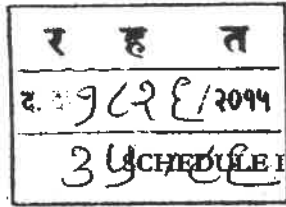 र ह त
द. १८२६/२०१५
३५
SCHEDULE I